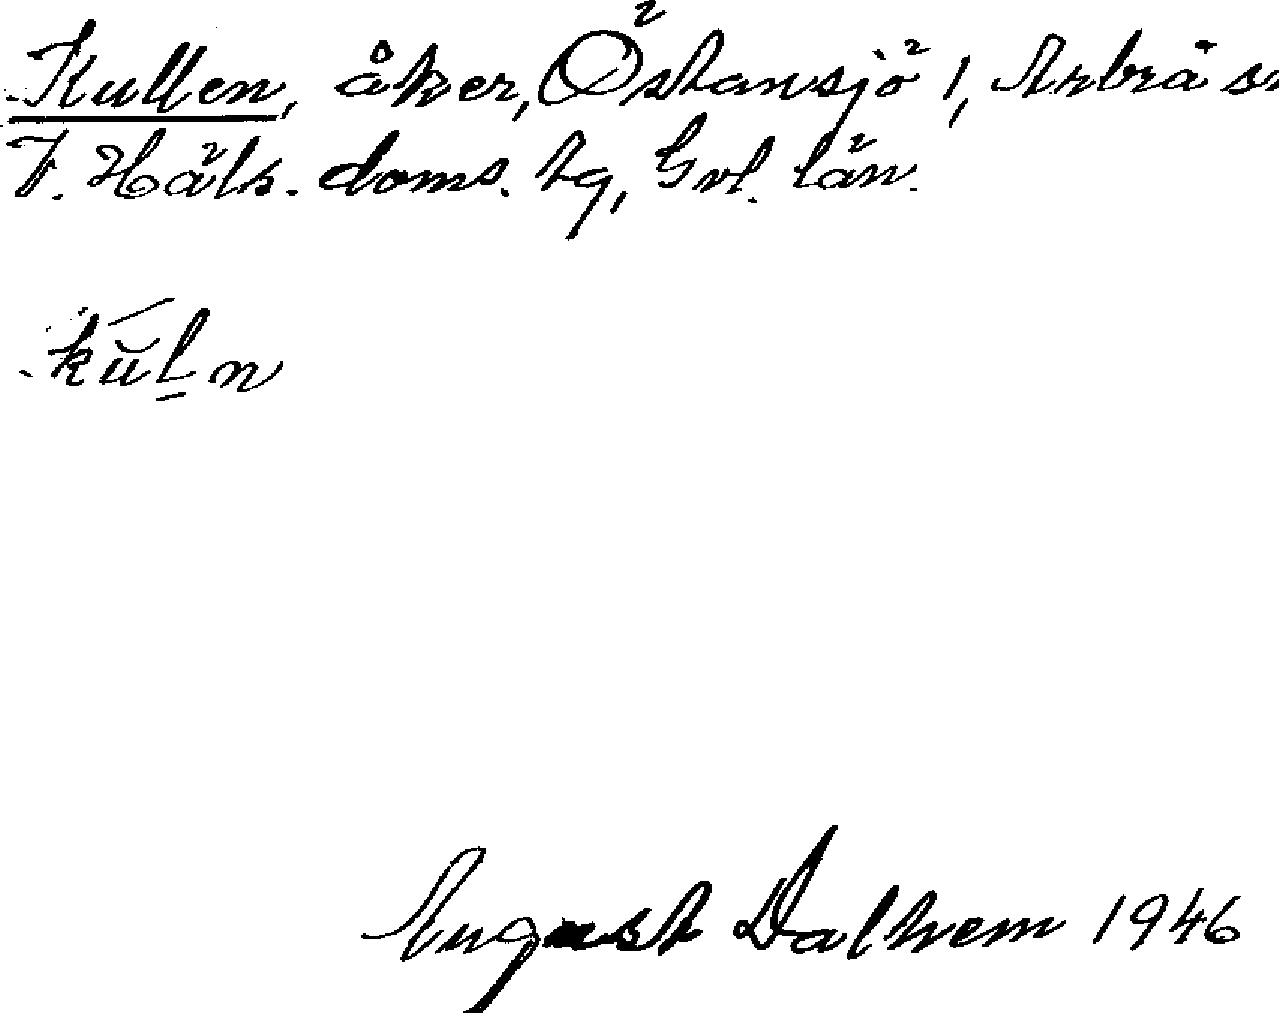 Kullen, åker, Östansjö 1, Arbrå sn
V. Häls. doms. tg, Gvl. län.
kŭl̠n
August Dalhem 1946